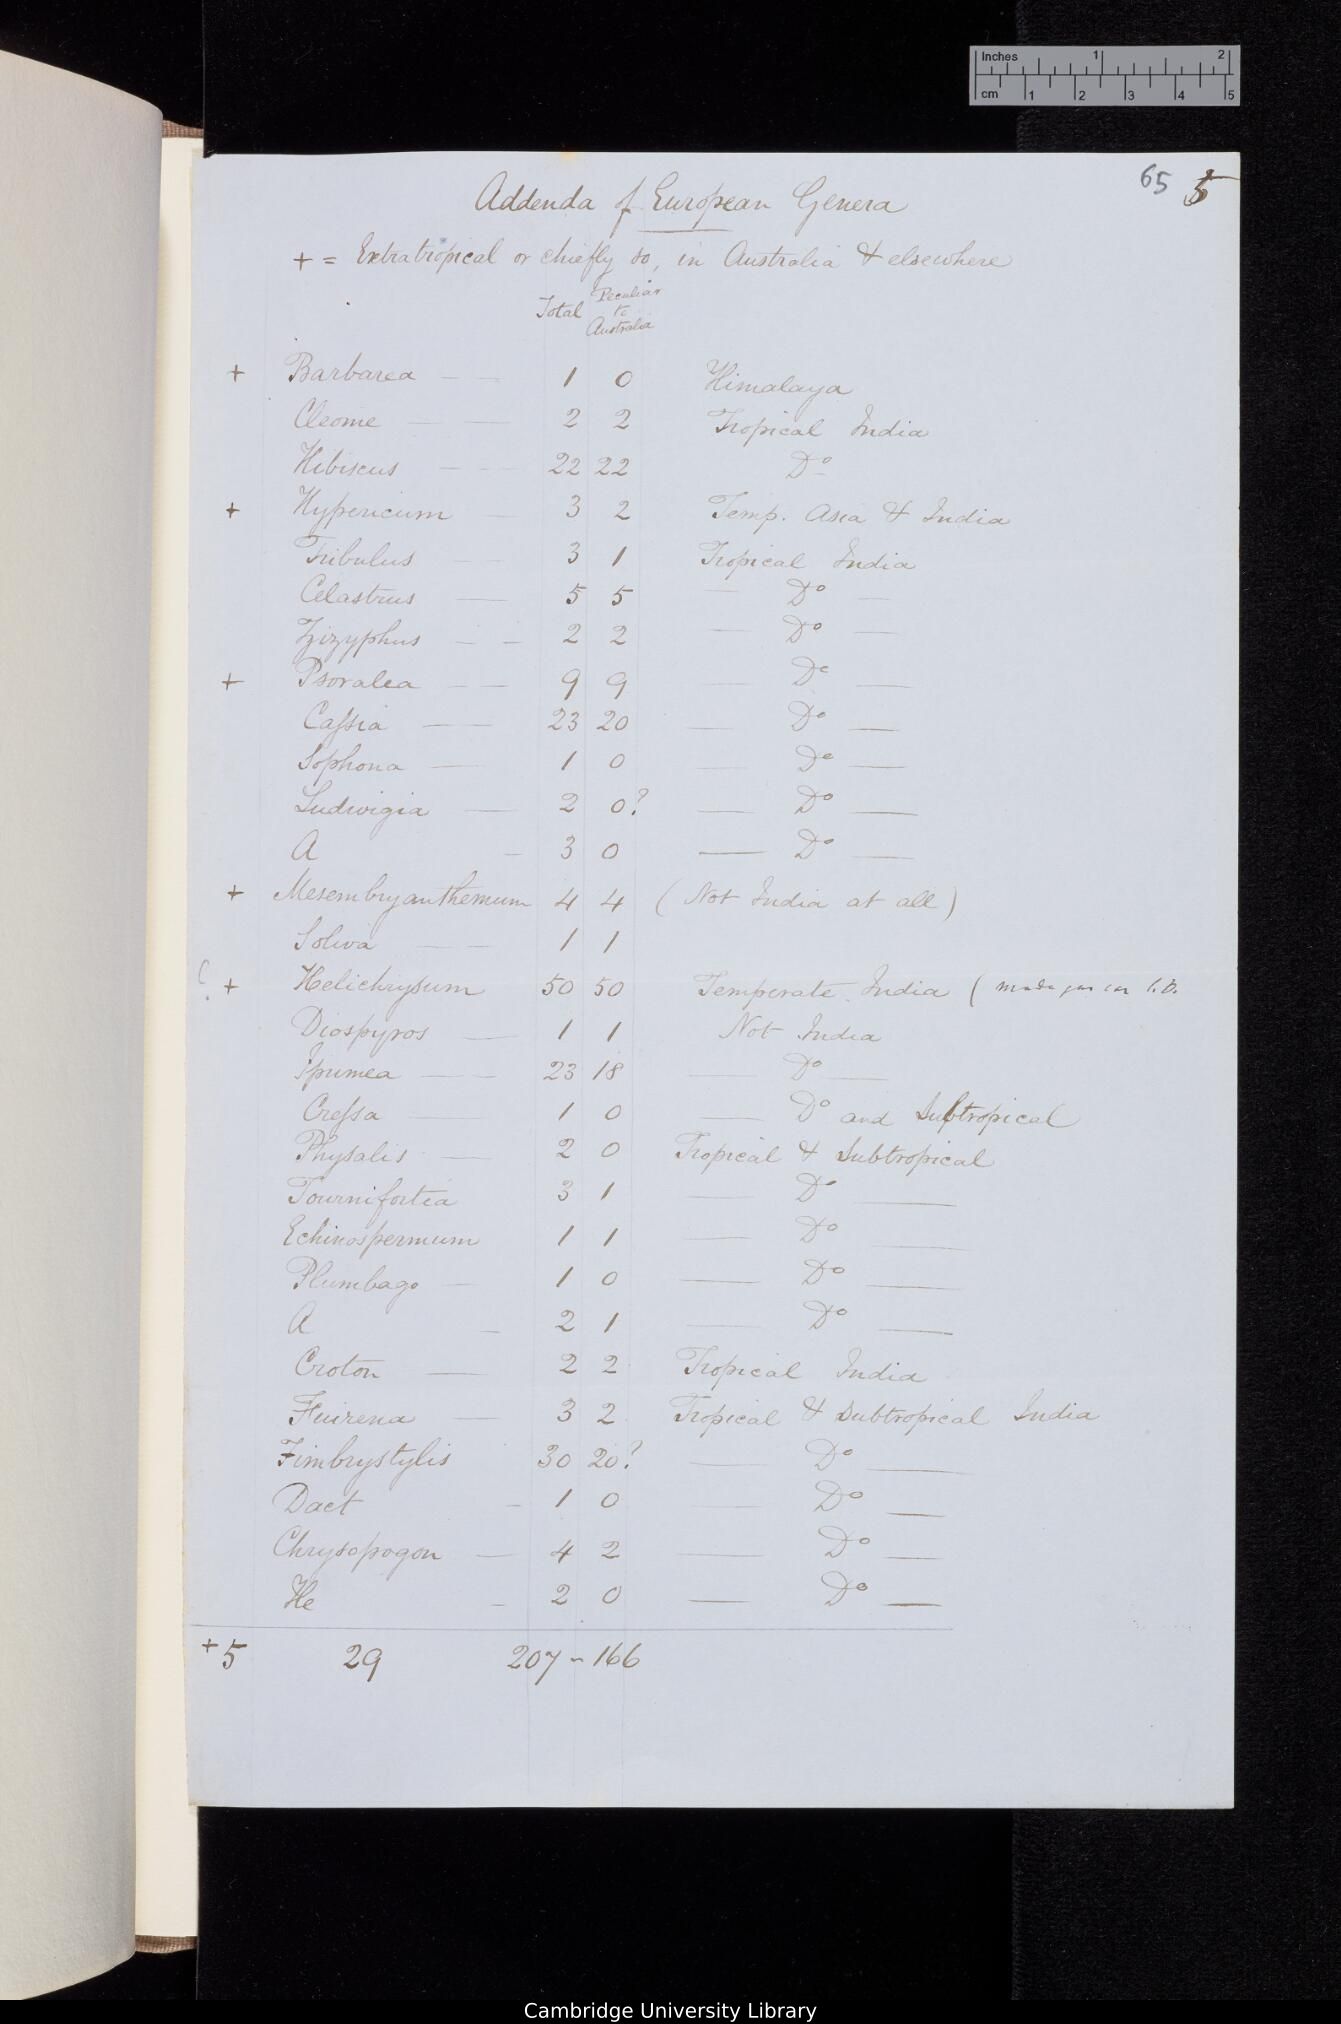 Inches 1 2
cm 1 2 3 4 5
65 5
Addenda of European Genera
+ = Extratropical or chiefly so, in Australia & elsewhere
Total Peculiar to Australia
+ Barbarea — — 1 0 Himalaya
Cleome — — 2 2 Tropical India
Hibiscus — — 22 22 Do
+ Hypericum — 3 2 Temp. Asia & India
Tribulus — 3 1 Tropical India
Celastrus — 5 5 — Do —
Zizyphus — — 2 2 — Do —
+ Psoralea — — 9 9 — Do —
Cassia — 23 20 — Do —
Sophora — 1 0 — Do —
Ludwigia — 2 0? — Do —
A — 3 0 — Do —
+ Mesembryanthemum 4 4 (Not India at all)
Soliva — — 1 1
(? + Helichrysum 50 50 Temperate India (Madagascar C.D.
Diospyros — 1 1 Not India
Ipumea — — 23 18 — Do —
Cressa — 1 0 — Do and Subtropical
Physalis — 2 0 Tropical & Subtropical
Tournifortia 3 1 — Do —
Echinospermum 1 1 — Do —
Plumbago — 1 0 — Do —
A — 2 1 — Do —
Croton — 2 2 Tropical India
Fuirena — 3 2 Tropical & Subtropical India
Fimbrystylis 30 20? — Do —
Dact — 1 0 — Do —
Chrysopogon — 4 2 — Do —
He — 2 0 — Do —
+5 29 207 - 166
Cambridge University Library